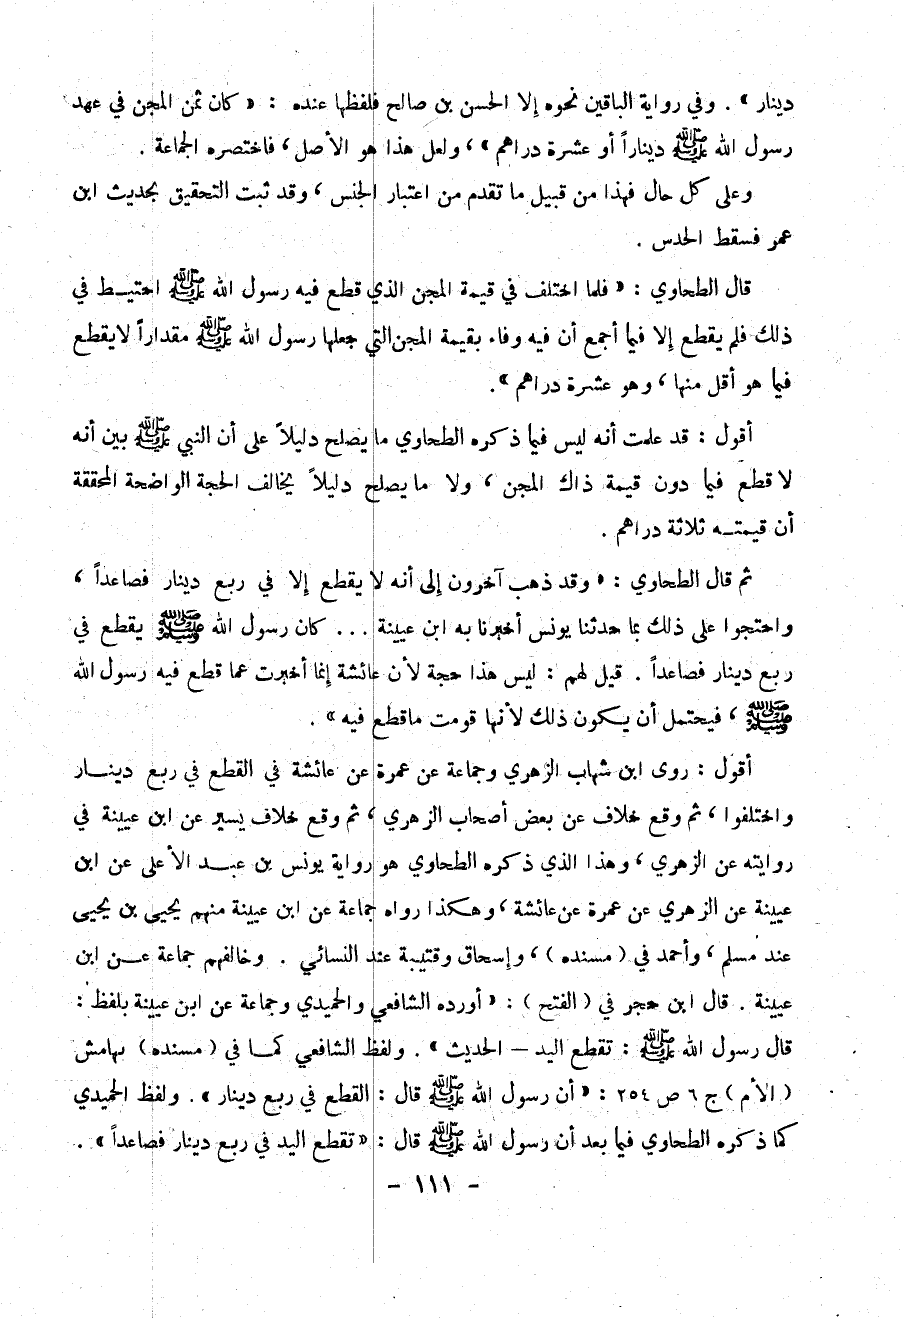 دينار » . وفي رواية الباقين نحوه إلا الحسن بن صالح فلفظها عنده : « كان ثمن المجن في عهد
رسول الله ﷺ ديناراً أو عشرة دراهم » ، ولعل هذا هو الأصل ، فاختصره الجماعة .
وعلى كل حال فهذا من قبيل ما تقدم من اعتبار الجنس ، وقد ثبت التحقيق بحديث ابن
عمر فسقط الحدس .
قال الطحاوي : « فلما اختلف في قيمة المجن الذي قطع فيه رسول الله ﷺ احتيط في
ذلك فلم يقطع إلا فيما أجمع أن فيه وفاء بقيمة المجن التي جعلها رسول الله ﷺ مقداراً لا يقطع
فيما هو أقل منها ، وهو عشرة دراهم » .
أقول : قد علمت أنه ليس فيما ذكره الطحاوي ما يصلح دليلاً على أن النبي ﷺ بين أنه
لا قطع فيما دون قيمة ذاك المجن ، ولا ما يصلح دليلاً يخالف الحجة الواضحة المحققة
أن قيمتـه ثلاثة دراهم .
ثم قال الطحاوي : « وقد ذهب آخرون إلى أنه لا يقطع إلا في ربع دينار فصاعداً ،
واحتجوا على ذلك بما حدثنا يونس أخبرنا به ابن عيينة ... كان رسول الله ﷺ يقطع في
ربع دينار فصاعداً . قيل لهم : ليس هذا حجة لأن عائشة إنما أخبرت عما قطع فيه رسول الله
ﷺ ، فيحتمل أن يكون ذلك لأنها قومت ما قطع فيه » .
أقول : روى ابن شهاب الزهري وجماعة عن عمرة عن عائشة في القطع في ربع دينـار
واختلفوا ، ثم وقع خلاف عن بعض أصحاب الزهري ، ثم وقع خلاف يسير عن ابن عيينة في
روايته عن الزهري ، وهذا الذي ذكره الطحاوي هو رواية يونس بن عبـد الأعلى عن ابن
عيينة عن الزهري عن عمرة عن عائشة ، وهكذا رواه جماعة عن ابن عيينة منهم يحيى بن يحيى
عند مسلم ، وأحمد في ( مسنده ) ، وإسحاق وقتيبة عند النسائي . وخالفهم جماعة عـن ابن
عيينة . قال ابن حجر في ( الفتح ) : « أورده الشافعي والحميدي وجماعة عن ابن عيينة بلفظ :
قال رسول الله ﷺ : تقطع اليد – الحديث » . ولفظ الشافعي كمـا في ( مسنده ) بهامش
( الأم ) ج ٦ ص ٢٥٤ : « أن رسول الله ﷺ قال : القطع في ربع دينار » . ولفظ الحميدي
كما ذكره الطحاوي فيما بعد أن رسول الله ﷺ قال : « تقطع اليد في ربع دينار فصاعداً » .
- ١١١ -